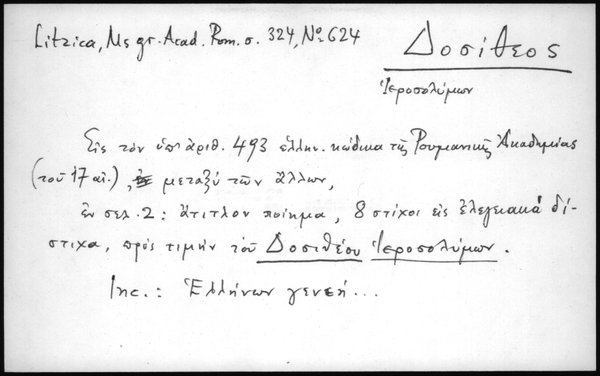 Litzica, Ms gr. Acad. Rom. σ. 324, Νο. 624
Δοσίθεος
Ἱεροσολύμων
Εἰς τὸν ὑπ' ἀριθ. 493 ἑλλην. κώδικα τῆς Ρουμανικῆς Ἀκαδημίας
(τοῦ 17 αἰ.), μεταξὺ τῶν ἄλλων,
ἐν σελ. 2: ἄτιτλον ποίημα, 8 στίχοι εἰς ἐλεγειακὰ δί-
στιχα, πρὸς τιμὴν τοῦ Δοσιθέου Ἱεροσολύμων.
Inc.: Ἑλλήνων γενεή...